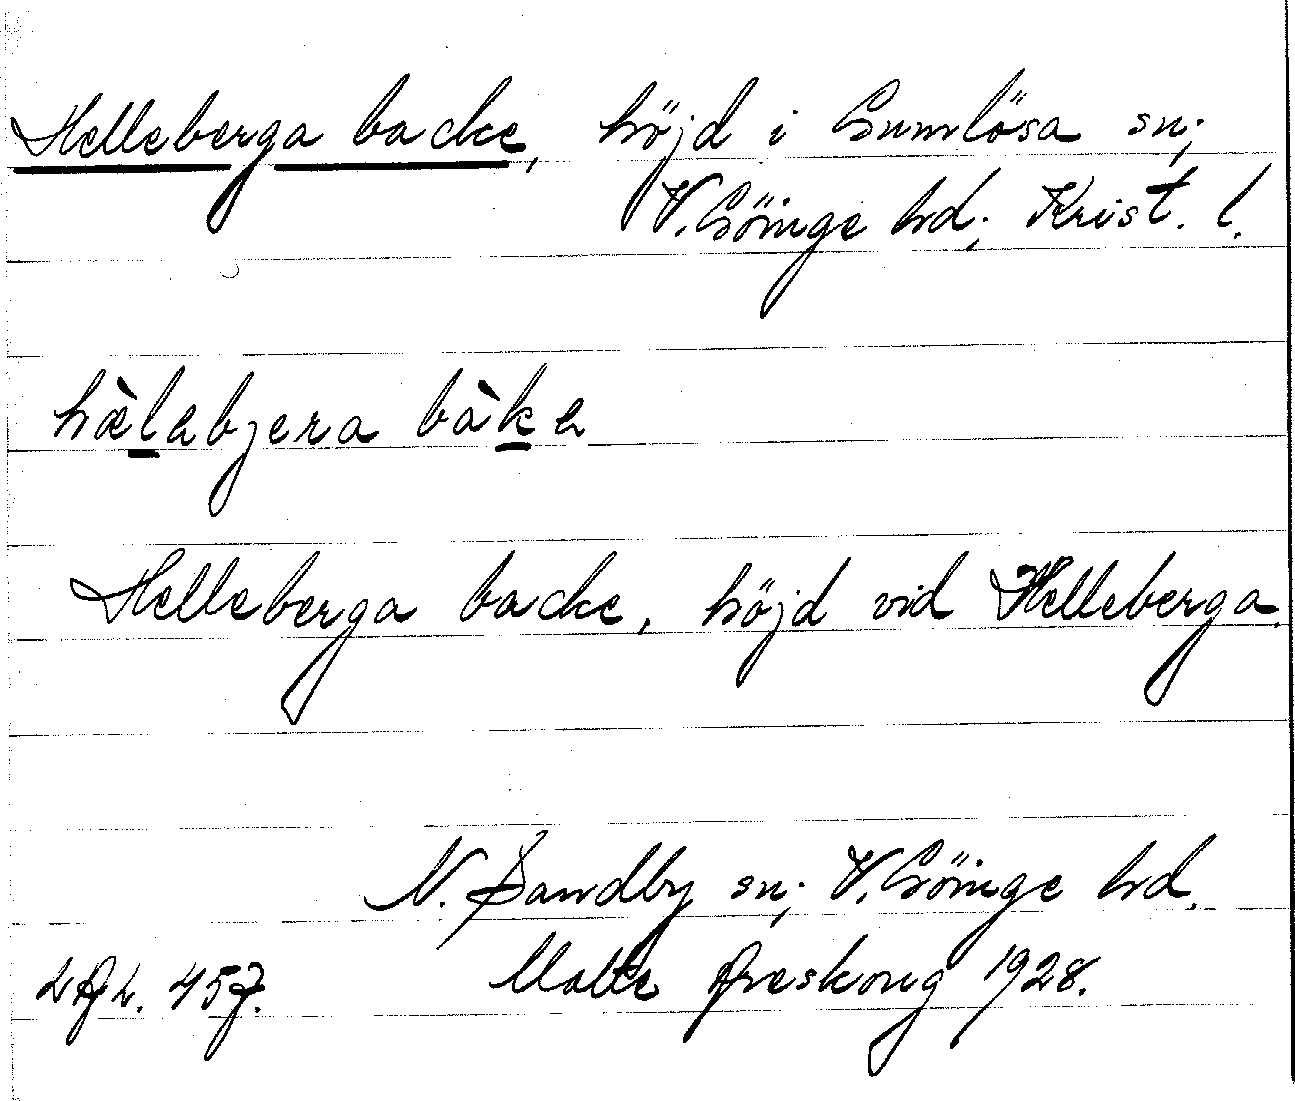 Helleberga backe, höjd i Gumlösa sn;
V. Göinge hd; Krist. l.
hælabjera bàka
Helleberga backe, höjd vid Helleberga.
N. Sandby sn; V. Göinge hd.
457. Malte Areskoug 1928.